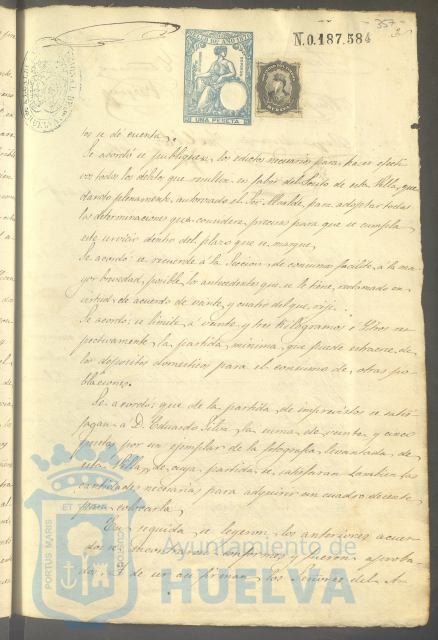 357
2
N.0.187.584
SELLO 10º AÑO 187
UNA PESETA
los u de cuenta.
Se acordó se publiquen los edictos necesarios para hacer efecti
vos todos los debitos que resulten en favor del Posito de esta Villa, que
dando plenamente autorizado el Sor. Alcalde, para adoptar todas
las determinaciones que considere precisas para que se cumpla
este servicio dentro del plazo que se marque.
Se acordó: se recuerde á la Seccion de consumos facilite á la ma
yor brevedad posible los antecedentes que se le tiene reclamado en
virtud de acuerdo de veinte y cuatro del que rije.
Se acordó: se limite á veinte y tres Kilogramos ó litros res
pectivamente la partida minima que puede extraerse de
los depositos domesticos para el consumo de otras po
blaciones.
Se acordó: que de la partida de imprevistos se satis
fagan a D. Eduardo Silva la suma de veinte y cinco
pesetas por un ejemplar de la fotografia levantada de
esta Villa, de cuya partida se satisfaran tambien las
cantidades necesarias para adquirir un cuadro decente
para colocarla.
En seguida se leyeron los anteriores acuer
dos se encontraron conformes y fueron aproba
dos. Y de ser asi firman los Señores del A
PORTUS MARIS ET TERRAE CUSTODIA
Ayuntamiento de
HUELVA